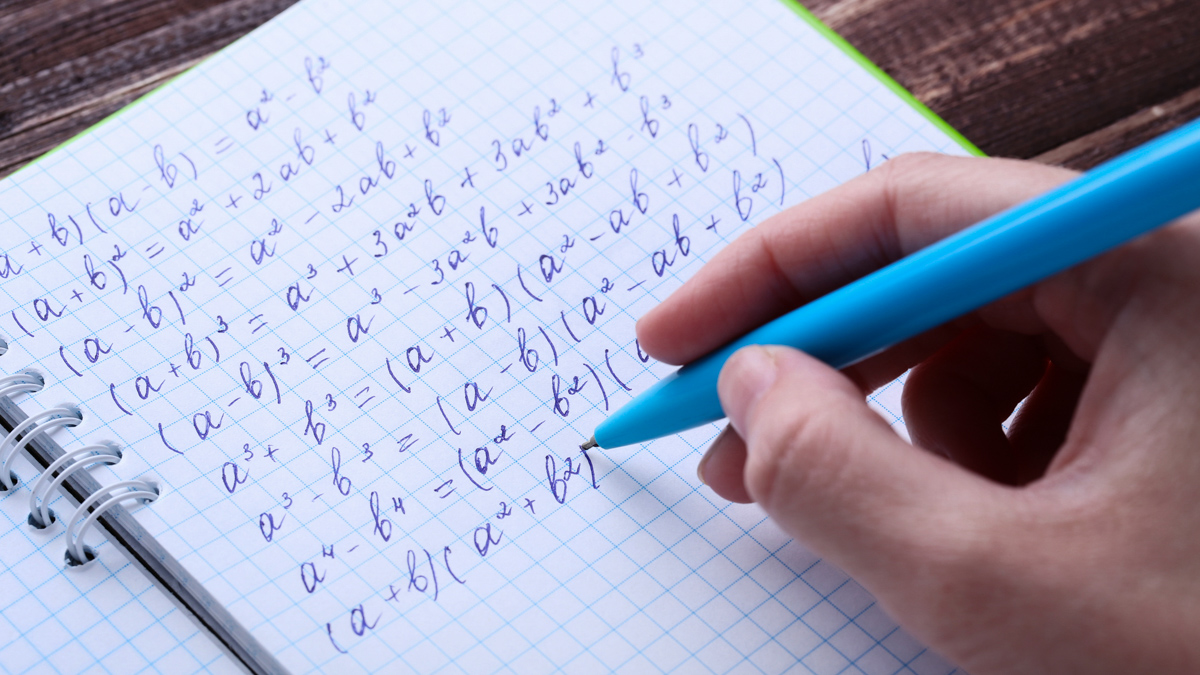 a + b)(a - b) = a² - b²
(a + b)² = a² + 2ab + b²
(a - b)² = a² - 2ab + b²
(a + b)³ = a³ + 3a²b + 3ab² + b³
(a - b)³ = a³ - 3a²b + 3ab² - b³
a³ + b³ = (a + b)(a² - ab + b²)
a³ - b³ = (a - b)(a² - ab + b²)
a⁴ - b⁴ = (a² - b²)(
(a + b)(a² + b²)